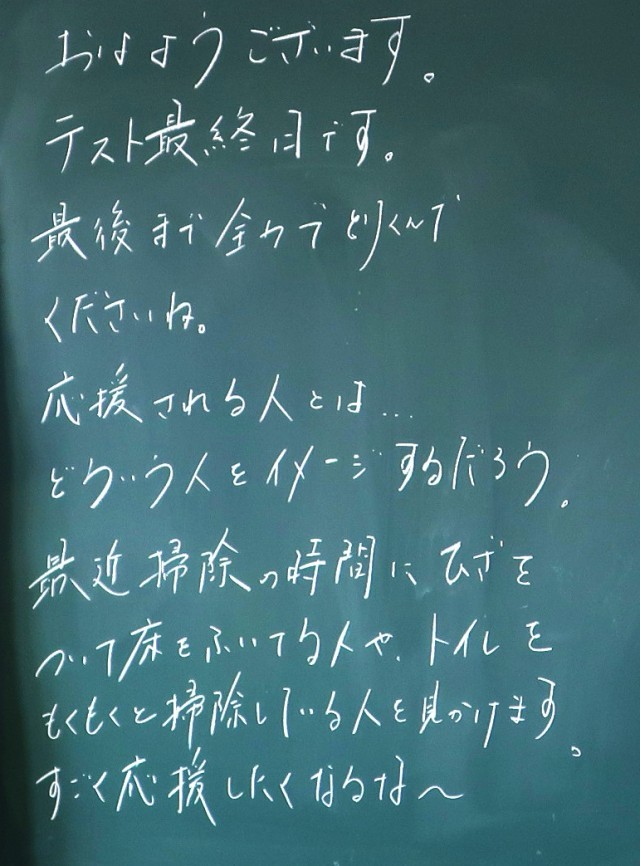 おはようございます。
テスト最終日です。
最後まで全力でとりくんで
くださいね。
応援される人とは...
どういう人をイメージするだろう。
最近掃除の時間にひざを
ついて床をふいてる人や、トイレを
もくもくと掃除している人を見かけます。
すごく応援したくなるな〜